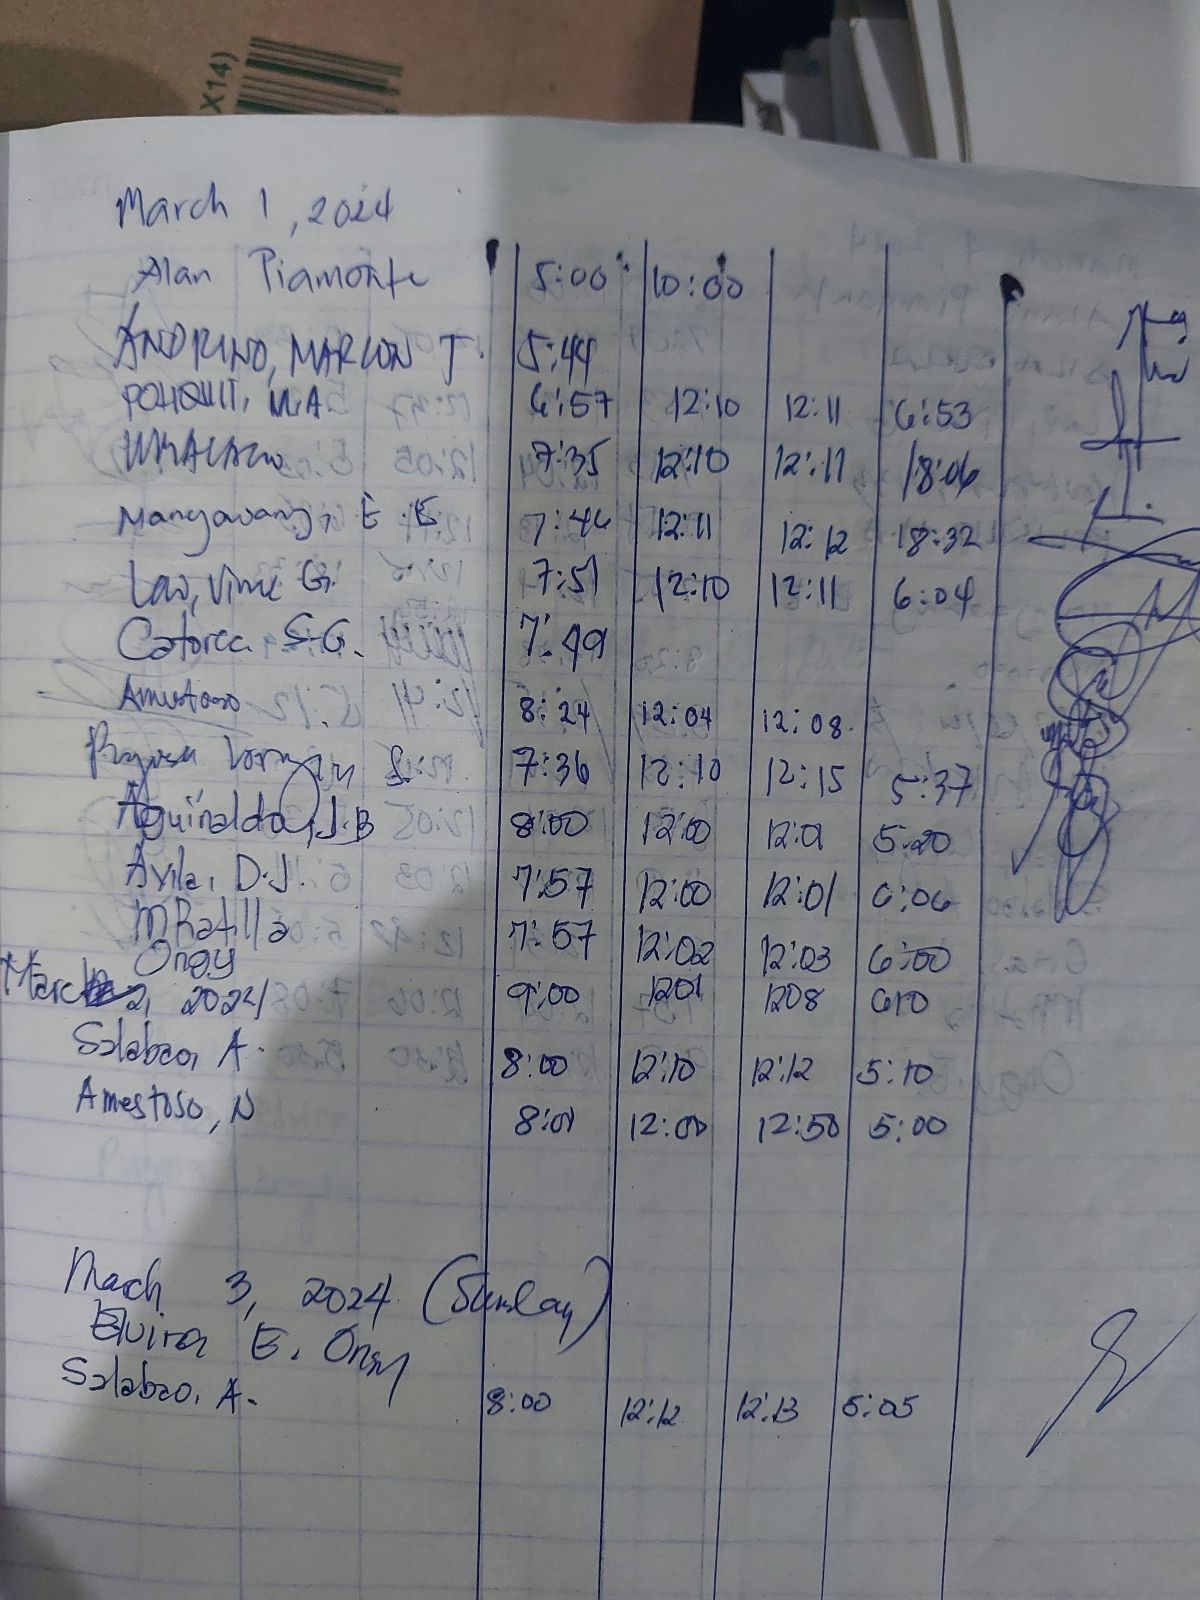 X14)
March 1, 2024
Alan Piamonte 5:00 10:00
ANDRINO, MARLON J. 5:44
6:57 12:10 12:11 6:53
7:35 12:10 12:11 18:06
Mangawang, E. E 7:46 12:11 12:12 18:32
Lao, Vince G. 7:51 12:10 12:11 6:04
Catorce S.G. 7:49
Amestoso 8:24 12:04 12:08
7:36 12:10 12:15 5:37
Aguinaldo, J.B 8:00 12:00 12:01 5:20
Avila, D.J. 7:57 12:00 12:01 6:06
MRatilla 7:57 12:02 12:03 6:00
Ongy 9:00 1201 1208 610
March 2, 2024
Salabao, A. 8:00 12:10 12:12 5:10
Amestoso, N 8:01 12:00 12:50 5:00
Mach 3, 2024 (Sunday)
Elvira E. Ongy
Salabao, A. 8:00 12:12 12:13 5:05